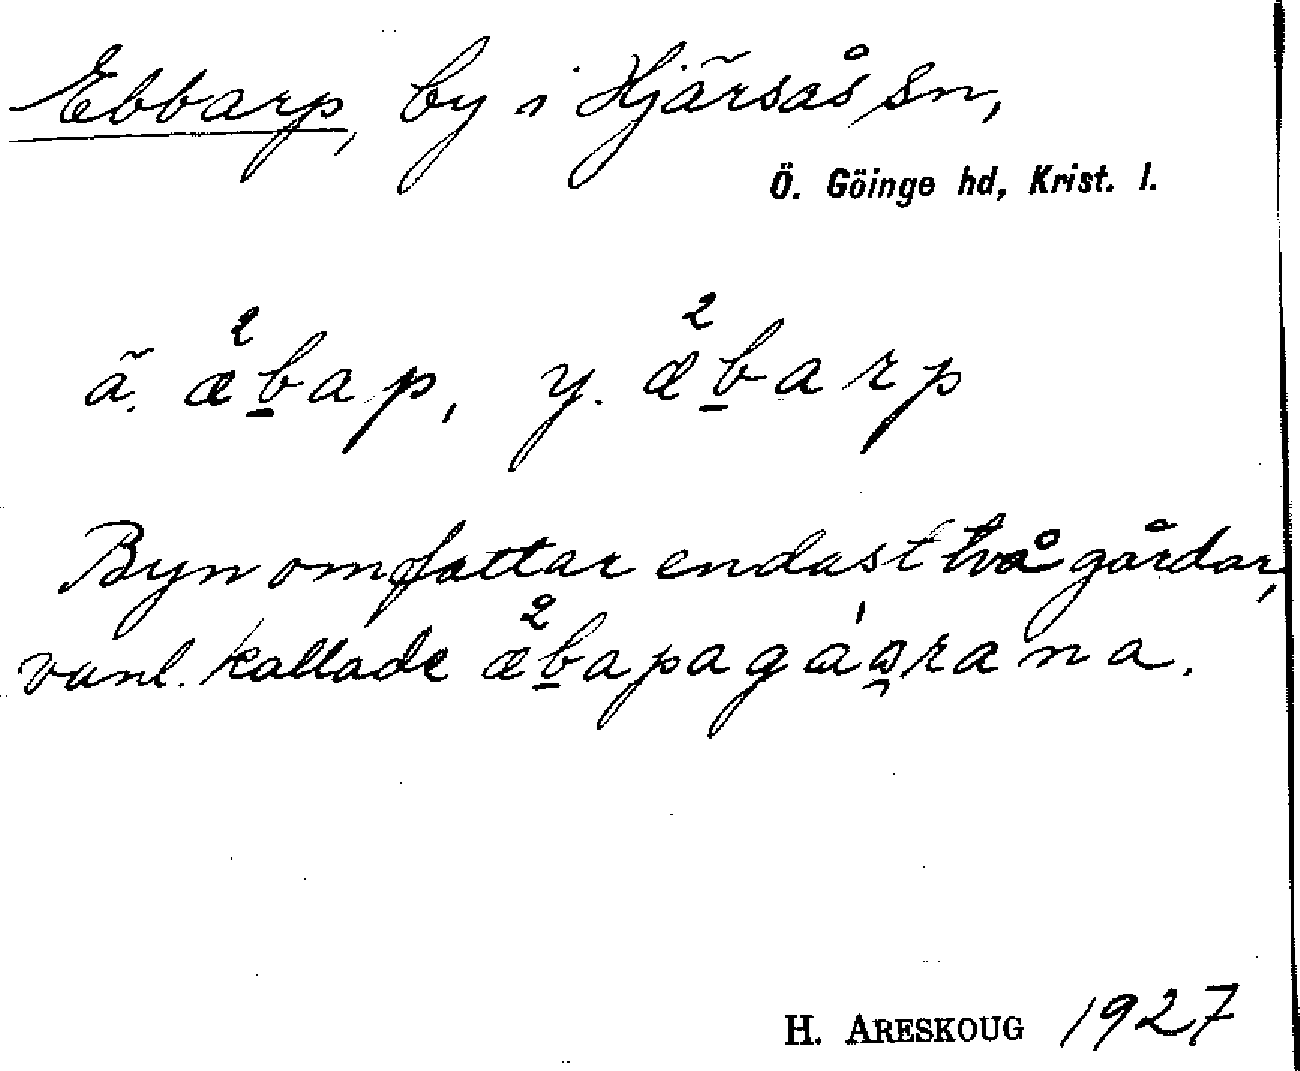 Ebbarp, by i Hjärsås sn,
Ö. Göinge hd, Krist. l.
ä. æ²b̲ap, y. æ²b̲arp
Byn omfattar endast två gårdar,
vanl. kallade æ²b̲apagáɑ̯rana.
H. ARESKOUG 1927